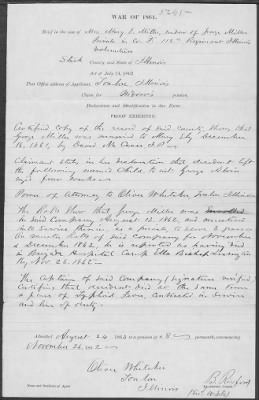 WAR OF 1861.
Brief in the case of Mrs. Mary E. Miller, widow of George Miller
Private in Co. F. 115th Regiment Illinois
Volunteers
County and State of Illinois
Act of July 14, 1862
Post Office address of Applicant, Illinois
Claim for Widow's pension
Declaration and Identification in due Form.
PROOF EXHIBITED
Certified copy of the record of said county shows that
George Miller was married to Mary December
16, 1851, by David
Claimant states in her declaration that decedent left
the following named child to wit George
Power of Attorney to Oliver Whitaker Illinois
The Rolls show that George Miller was
in said Company August 13, 1862, and mustered
into service therein, as a private to serve 3 years
On muster Rolls of said Company for November
& December 1862, he is reported as having died
in Hospital Camp Ella Bishop Lexington
Ky, Nov 26 1862
The Captain of said Company signature verified
Certifies that decedent died at the same
place of Typhoid Fever, contracted in service
and line of duty
Admitted August 24 1863 to a pension of $ 8 per month, commencing
November 26, 1862
Oliver Whitaker
Illinois